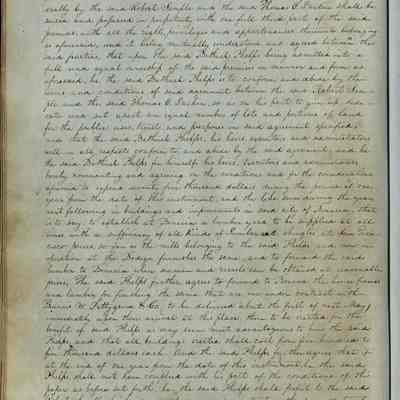 erally by the said Robert Semple and the said Thomas O. Larkin shall be
seized and possessed in perpetuity with one full third part of the said
premises, with all the rights, privileges and appurtenances thereunto belonging
as aforesaid, and it being mutually understood and agreed between the
said parties, that upon the said Bethuel Phelps being admitted into a
full and equal ownership of the said premises in manner and form as
aforesaid, he the said Bethuel Phelps is to conform and abide by the
terms and conditions of said agreement between the said Robert Sem-
ple and the said Thomas O. Larkin, so as on his part to give up, dedi-
cate and set apart an equal number of lots and portions of land
for the public uses, trusts and purposes in said agreement specified;
and that the said Bethuel Phelps, his heirs, executors and administrators
will in all respects conform to and abide by the said agreement, and he
the said Bethuel Phelps for himself his heirs, executors and administrators
hereby covenanting and agreeing on the conditions and for the consideration
aforesaid to expend twenty five thousand dollars during the period of one
year from the date of this instrument, and the like sum during the year
next following in buildings and improvements in said city of Benicia, that
is to say, to establish at Benicia a lumber yard to be supplied at all
times with a sufficiency of all kinds of lumber and shingles at San Fran-
cisco prices so far as the mills belonging to the said Phelps and now in
operation at the Bodega furnishes the same, and to forward the said
lumber to Benicia when seamen and vessels can be obtained at reasonable
prices. The said Phelps further agrees to forward to Benicia the house frames
and lumber for finishing the same that are now under contract with
& Co. to be delivered about the fifth of next May,
immediately upon their arrival at this place, them to be erected for the
benefit of said Phelps as may seem most advantageous to him the said
Phelps and that all buildings erected shall cost from five hundred to
five thousand dollars each. And the said Phelps further agrees that if
at the end of one year from the date of this instrument he the said
Phelps shall not have complied with his part of the conditions of this
paper as before set forth, he the said Phelps shall forfeit to the said